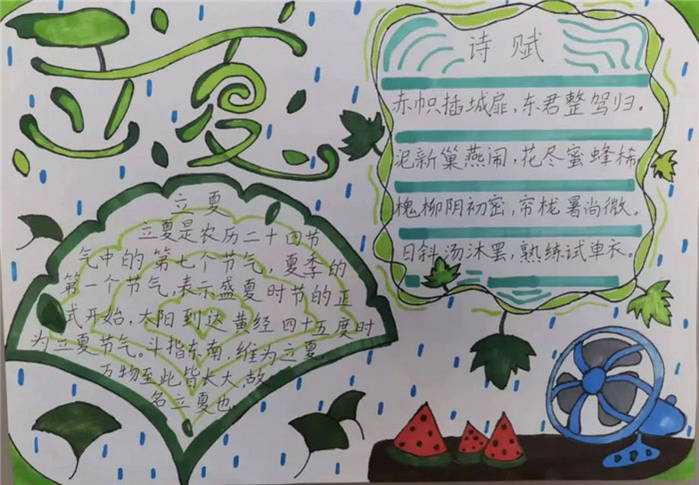 立夏
诗赋
赤帜插城扉，东君整驾归。
泥新巢燕闹，花尽蜜蜂稀。
槐柳阴初密，帘栊暑尚微。
日斜汤沐罢，熟练试单衣。
立夏
立夏是农历二十四节
气中的第七个节气，夏季的
第一个节气，表示盛夏时节的正
式开始，太阳到达黄经四十五度时
为立夏节气。斗指东南，维为立夏，
万物至此皆大大，故
名立夏也。